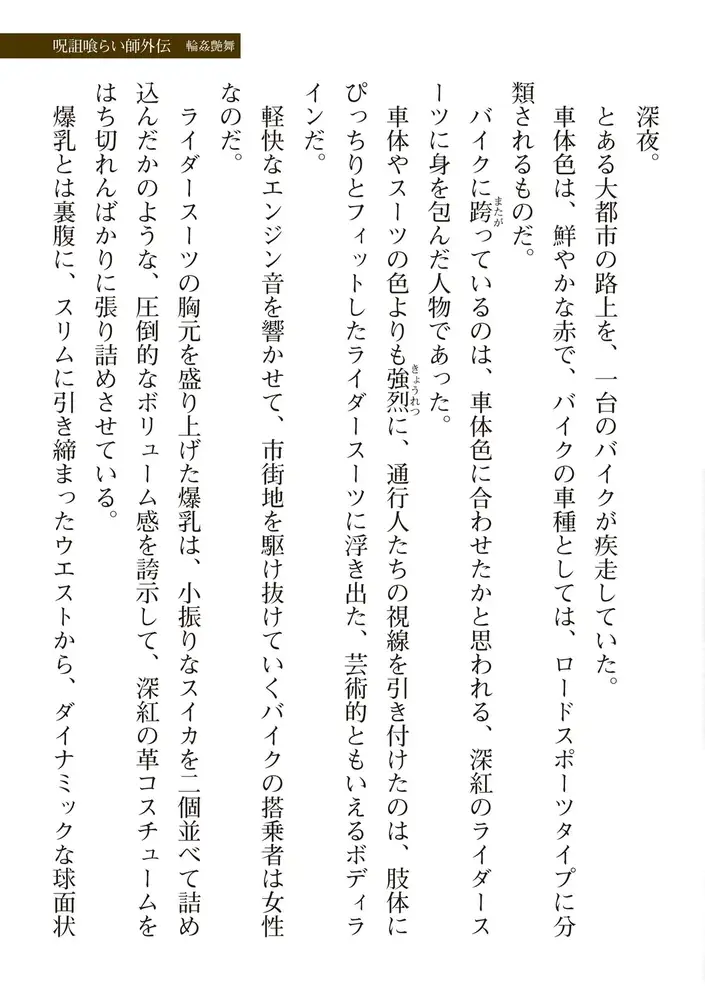 呪詛喰らい師外伝 輪姦艶舞
深夜。
とある大都市の路上を、一台のバイクが疾走していた。
車体色は、鮮やかな赤で、バイクの車種としては、ロードスポーツタイプに分
類されるものだ。
バイクに跨っているのは、車体色に合わせたかと思われる、深紅のライダース
ーツに身を包んだ人物であった。
車体やスーツの色よりも強烈に、通行人たちの視線を引き付けたのは、肢体に
ぴっちりとフィットしたライダースーツに浮き出た、芸術的ともいえるボディラ
インだ。
軽快なエンジン音を響かせて、市街地を駆け抜けていくバイクの搭乗者は女性
なのだ。
ライダースーツの胸元を盛り上げた爆乳は、小振りなスイカを二個並べて詰め
込んだかのような、圧倒的なボリューム感を誇示して、深紅の革コスチュームを
はち切れんばかりに張り詰めさせている。
爆乳とは裏腹に、スリムに引き締まったウエストから、ダイナミックな球面状